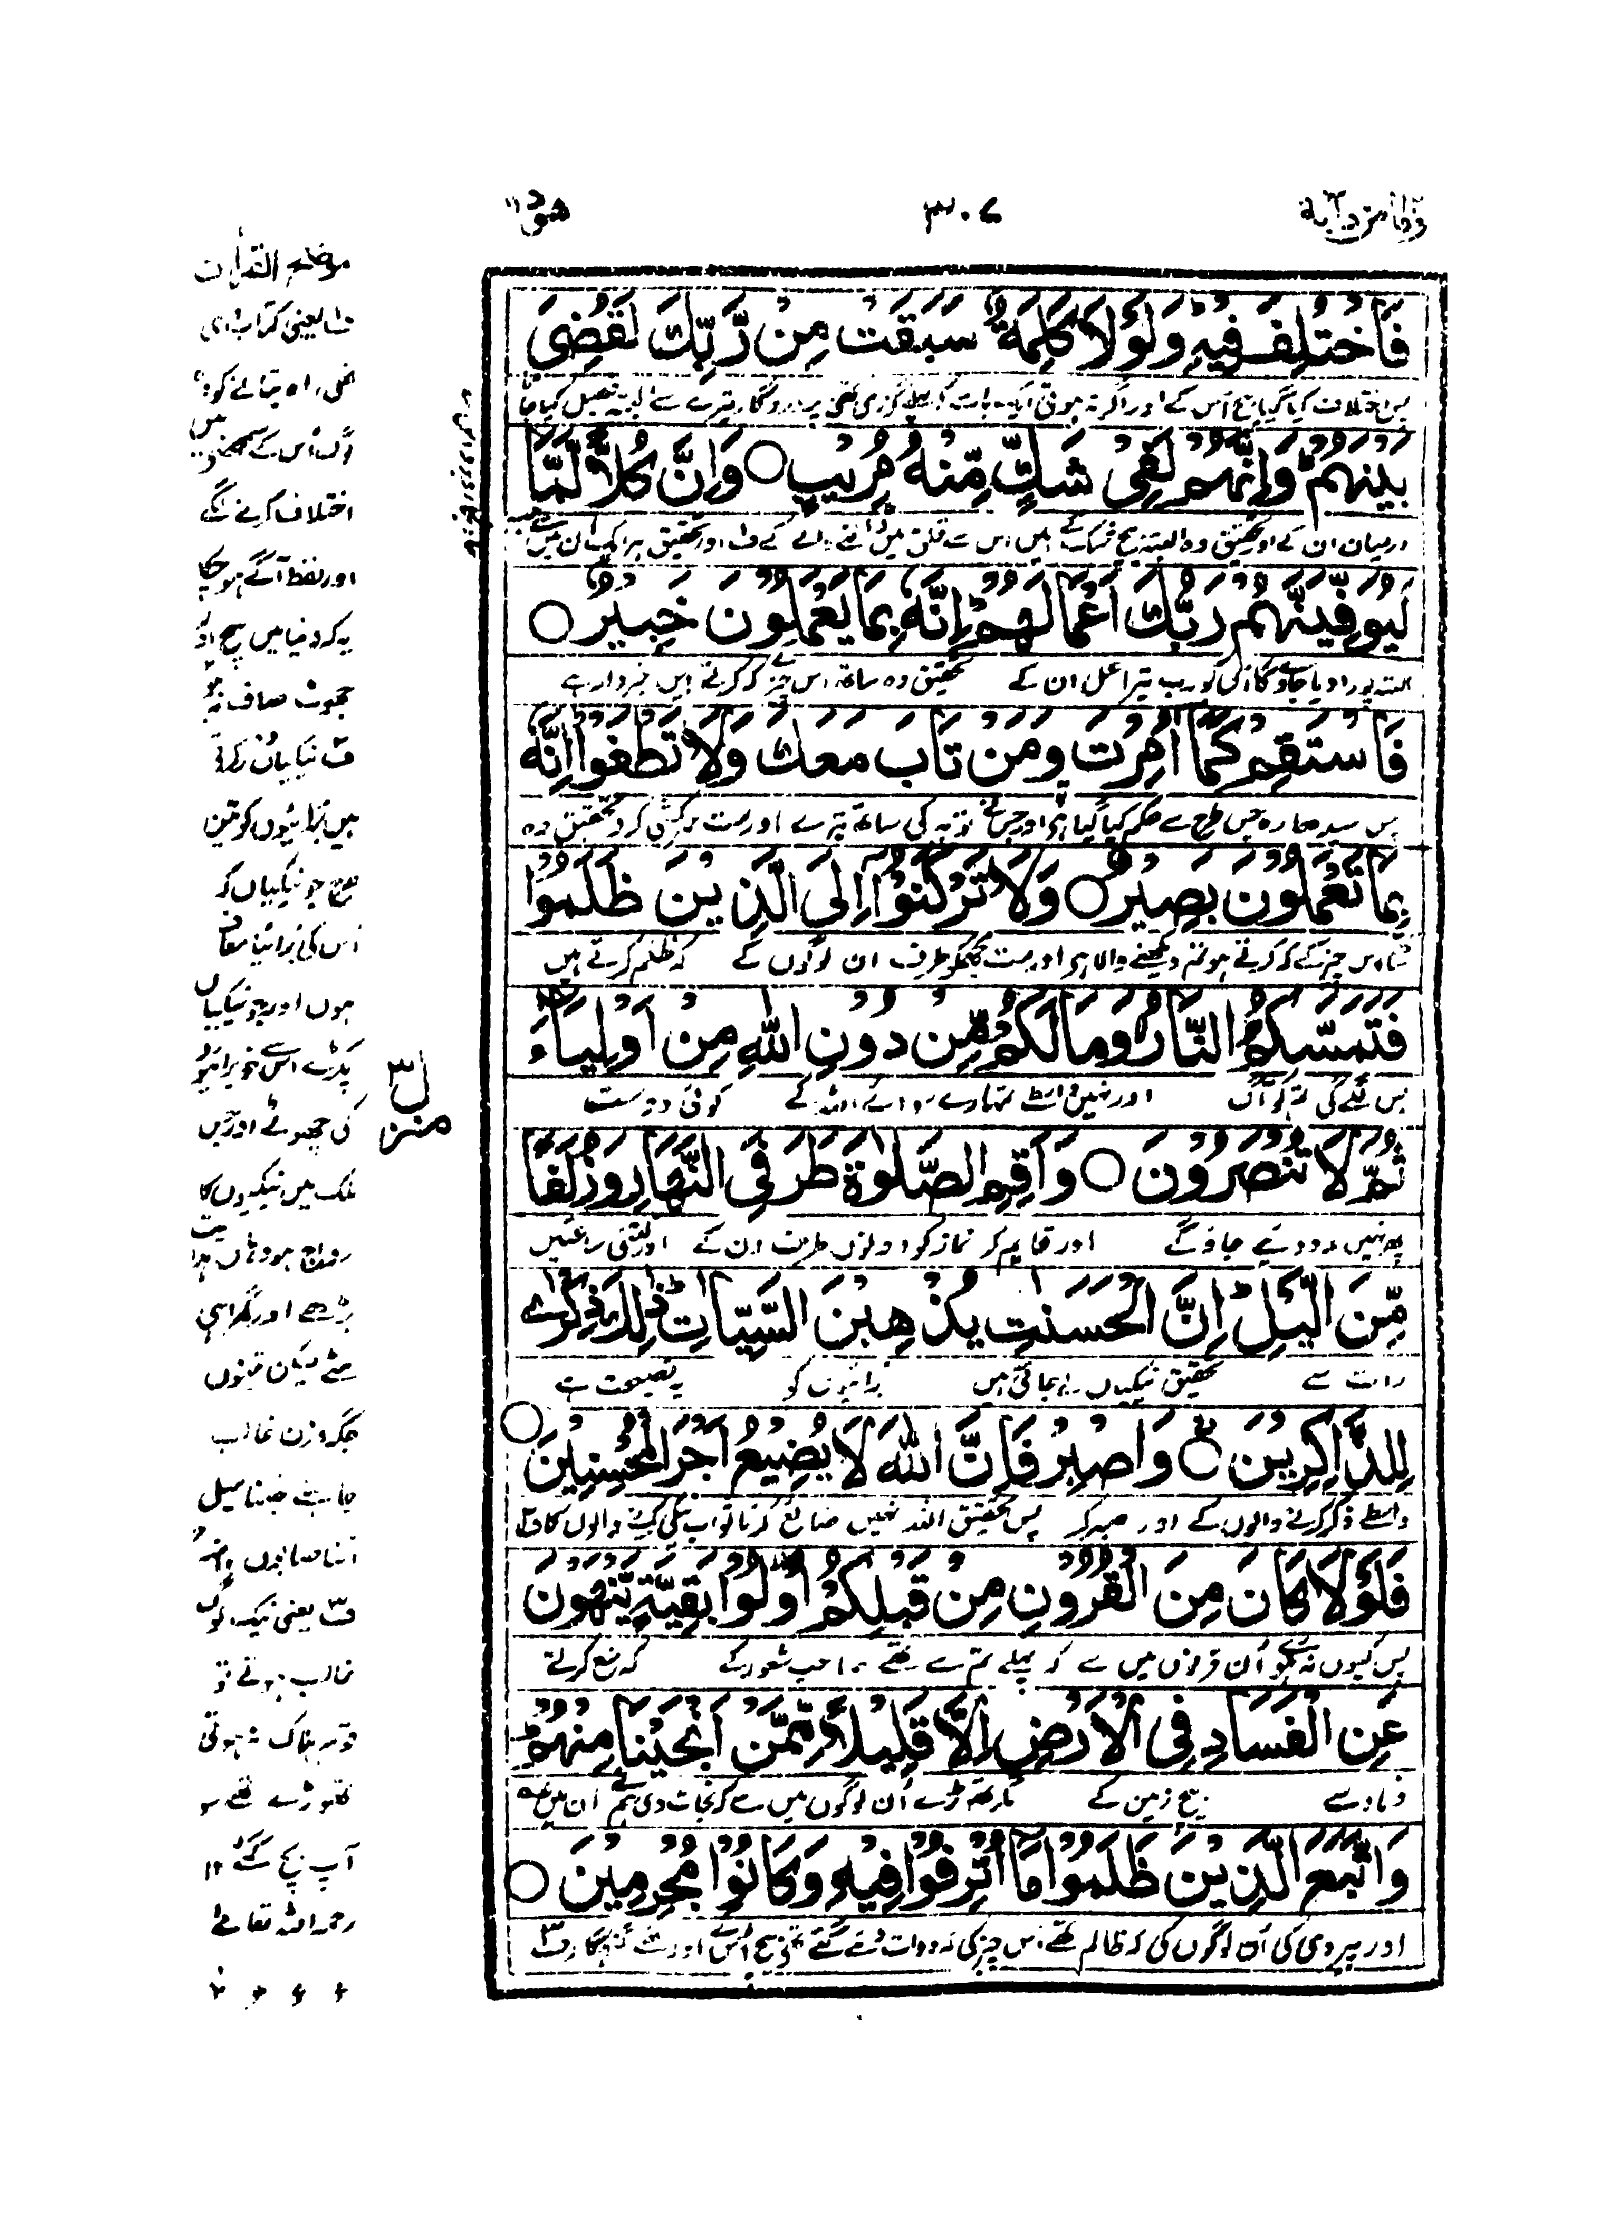 وما من دآبة ١٢
٣٠٧
هود ١١
فَاخْتُلِفَ فِيهِ وَلَوْلَا كَلِمَةٌ سَبَقَتْ مِنْ رَّبِّكَ لَقُضِىَ
پس اختلاف کیا گیا بیچ اس کے اور اگر نہ ہوتی ایک بات کہ پہلے گزری تھی پروردگار تیرے سے البتہ فیصل کیا جاتا
بَيْنَهُمْ ۚ وَاِنَّهُمْ لَفِىْ شَكٍّ مِّنْهُ مُرِيْبٍ ○ وَاِنَّ كُلًّا لَّمَّا
درمیان ان کے اور تحقیق وہ البتہ بیچ شک کے ہیں اس سے قلق میں ڈالنے والے کے ف۱ اور تحقیق ہر ایک ان میں سے جب
لَيُوَفِّيَنَّهُمْ رَبُّكَ اَعْمَالَهُمْ ۚ اِنَّهٗ بِمَا يَعْمَلُوْنَ خَبِيْرٌ ○
البتہ پورا دیا جاوے گا انکو رب تیرا عمل ان کے تحقیق وہ ساتھ اس چیز کے کہ کرتے ہیں خبردار ہے
فَاسْتَقِمْ كَمَآ اُمِرْتَ وَمَنْ تَابَ مَعَكَ وَلَا تَطْغَوْا اِنَّهٗ
پس سیدھا رہ جس طرح سے حکم کیا گیا ہے اور جس نے توبہ کی ساتھ تیرے اور مت سرکشی کرو تحقیق وہ
بِمَا تَعْمَلُوْنَ بَصِيْرٌ ○ وَلَا تَرْكَنُوْٓا اِلَى الَّذِيْنَ ظَلَمُوْا
ساتھ اس چیز کے کہ کرتے ہو تم دیکھنے والا ہے اور مت جھکو طرف ان لوگوں کے کہ ظلم کرتے ہیں
فَتَمَسَّكُمُ النَّارُ وَمَا لَكُمْ مِّنْ دُوْنِ اللّٰهِ مِنْ اَوْلِيَآءَ
پس لگے گی تم کو آگ اور نہیں واسطے تمہارے سوائے اللہ کے کوئی دوست
ثُمَّ لَا تُنْصَرُوْنَ ○ وَاَقِمِ الصَّلٰوةَ طَرَفَىِ النَّهَارِ وَزُلَفًا
پھر نہیں مدد دیے جاؤ گے اور قایم کر نماز کو دونوں طرف دن کے اور کتنی ساعتیں
مِّنَ الَّيْلِ ۚ اِنَّ الْحَسَنٰتِ يُذْهِبْنَ السَّيِّاٰتِ ۚ ذٰلِكَ ذِكْرٰى
رات سے تحقیق نیکیاں لے جاتی ہیں برائیوں کو یہ نصیحت ہے
لِلذّٰكِرِيْنَ ○ وَاصْبِرْ فَاِنَّ اللّٰهَ لَا يُضِيْعُ اَجْرَ الْمُحْسِنِيْنَ ○
واسطے ذکر کرنے والوں کے اور صبر کر پس تحقیق اللہ نہیں ضائع کرتا ثواب نیکی کرنے والوں کا ف۲
فَلَوْلَا كَانَ مِنَ الْقُرُوْنِ مِنْ قَبْلِكُمْ اُولُوْا بَقِيَّةٍ يَّنْهَوْنَ
پس کیوں نہ ہوئے ان قرنوں میں سے کہ پہلے تم سے تھے صاحب شعور کے کہ منع کرتے
عَنِ الْفَسَادِ فِى الْاَرْضِ اِلَّا قَلِيْلًا مِّمَّنْ اَنْجَيْنَا مِنْهُمْ ۚ
فساد سے بیچ زمین کے مگر تھوڑے ان لوگوں میں سے کہ نجات دی ہم نے ان میں سے
وَاتَّبَعَ الَّذِيْنَ ظَلَمُوْا مَآ اُتْرِفُوْا فِيْهِ وَكَانُوْا مُجْرِمِيْنَ ○
اور پیروی کی ان لوگوں کی کہ ظالم تھے اس چیز کی کہ دولت دئے گئے تھے بیچ اسکے اور تھے گنہگار ف۳
منزل ٣
موضح القرآن
ف۱ یعنی کتاب دی
تھی راہ بتانے کو
لوگ اس کے سمجھنے میں
اختلاف کرنے لگے
اور لفظ آگے ہو چکا
یہ کہ دنیا میں سچ اور
جھوٹ صاف نہ ہو
ف۲ نیکیاں دور کرتی
ہیں برائیوں کو تین
طرح جو نیکیاں کرے
اس کی برائیاں معاف
ہوں اور جو نیکیاں
پکڑے اس سے خو برائی
کی چھوٹے اور جس
ملک میں نیکیوں کا
رواج ہو وہاں ہدایت
بڑھے اور گمراہی
مٹے لیکن تینوں
جگہ وزن غالب
چاہئے جتنا میل
اتنا صابون
ف۳ یعنی نیک لوگ
غالب ہوتے تو
قوم ہلاک نہ ہوتی
تھوڑے تھے سو
آپ بچ گئے ۱۲
رحمہ اللہ تعالٰے